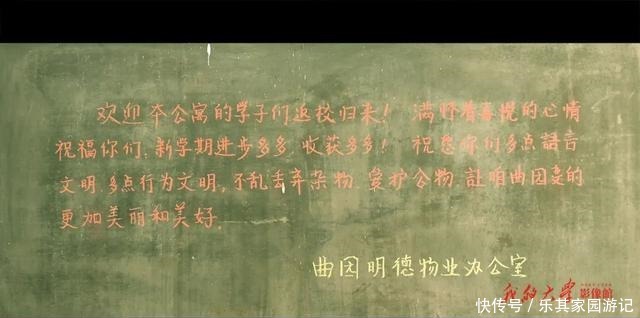 欢迎本公寓的学子们返校归来! 满怀着喜悦的心情
祝福你们,新学期进步多多,收获多多! 祝愿你们多点語言
文明,多点行为文明,不乱丢弃杂物,爱护公物,让咱曲园变的
更加美丽和美好。
曲园明德物业办公室
我的大学
影像館
快传号/乐其家园游记